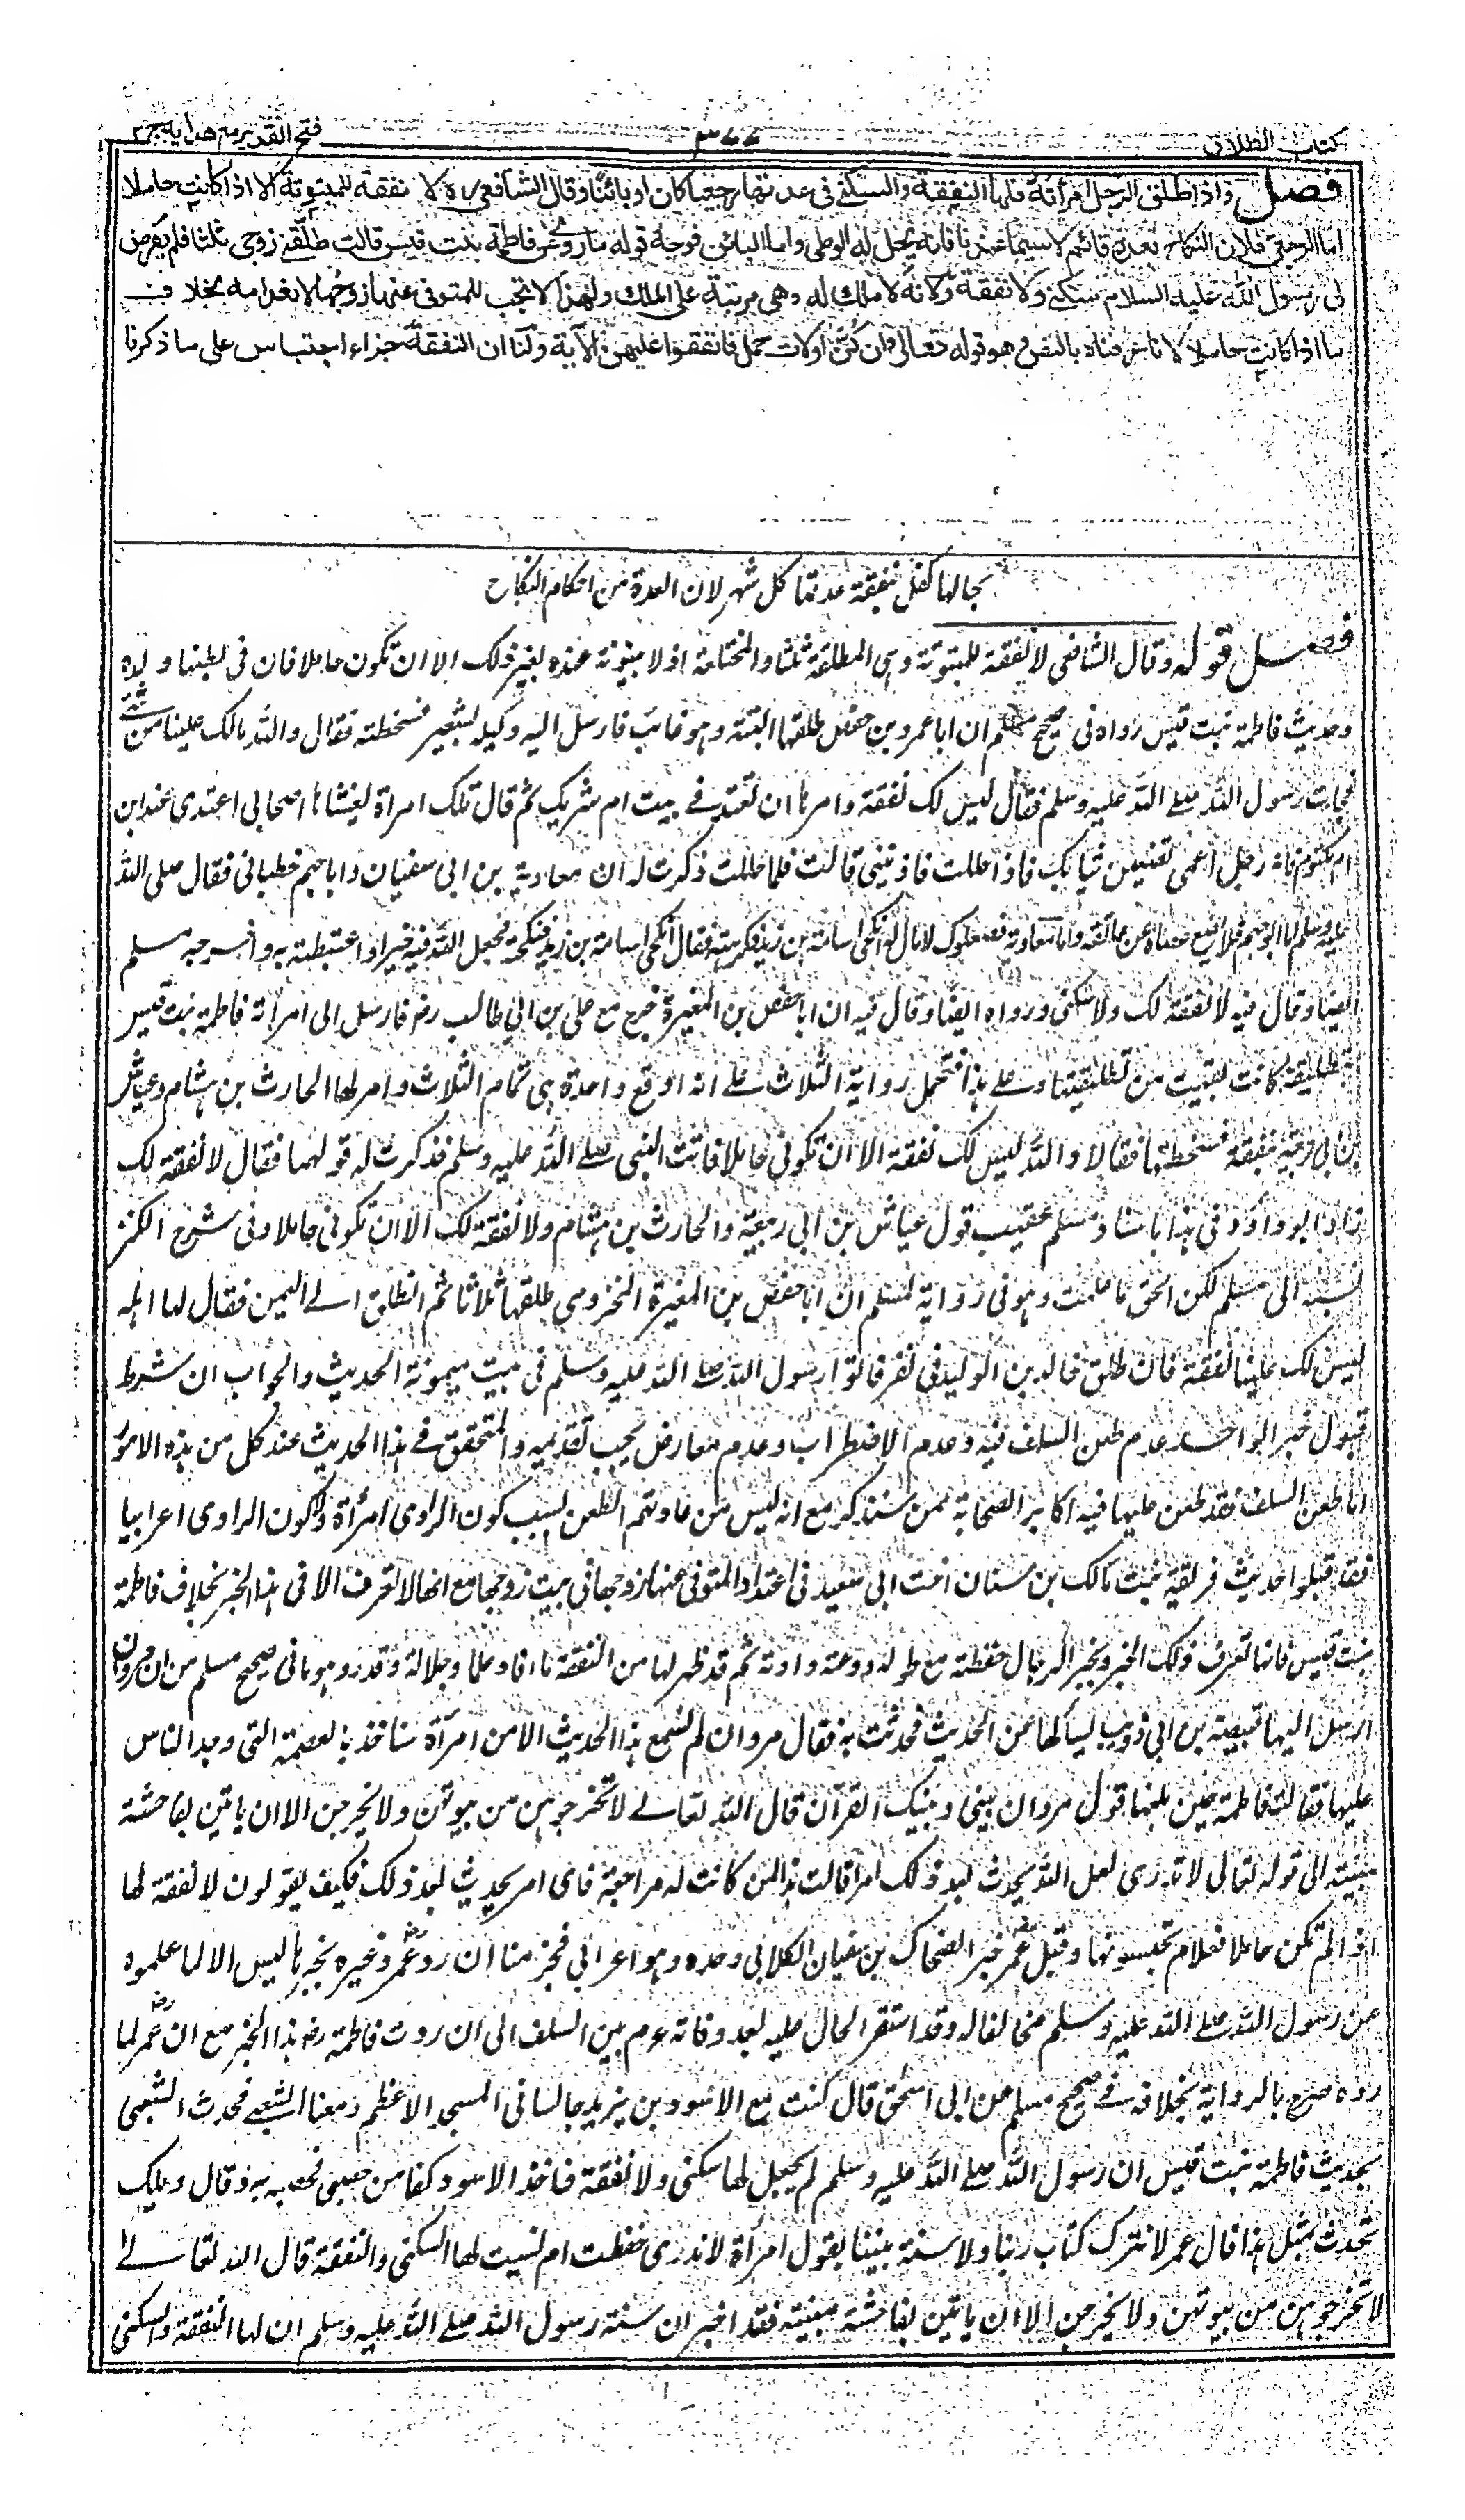 كتاب الطلاق ٣٧٧ فتح القدير مع هدايه ج ٢
فصل واذا طلق الرجل امرأته فلها النفقة والسكنى فى عدتها رجعيا كان او بائنا وقال الشافعى ره لا نفقة للمبتوتة الا اذا كانت حاملا
اما الرجعى فلان النكاح بعده قائم لا سيما عندنا فانه يحل له الوطى واما البائن فوجه قوله ما روى عن فاطمة بنت قيس قالت طلقنى زوجى ثلثا فلم يفرض
لى رسول الله عليه السلام سكنى ولا نفقة ولانه لا ملك له وهى مرتبة على الملك ولهذا لا تجب للمتوفى عنها زوجها لانعدامه بخلاف
ما اذا كانت حاملا لانا عرفناه بالنص وهو قوله تعالى وان كن اولات حمل فانفقوا عليهن الآية ولنا ان النفقة جزاء احتباس على ما ذكرنا
بحالها كفل نفقة عدتها كل شهر لان العدة من احكام النكاح
فصل قوله وقال الشافعى لا نفقة للمبتوتة وهى المطلقة ثلثا والمختلعة اذ لا بينونة عنده بغير ذلك الا ان تكون حاملا فان فى بطنها ولده
وحديث فاطمة بنت قيس رواه فى صحيح مسلم ان ابا عمرو بن حفص طلقها البتة وهو غائب فارسل اليه وكيله بشعير فسخطته فقال والله مالك علينا من شئ
فجاءت رسول الله صلى الله عليه وسلم فقال ليس لك نفقة وامرها ان تعتد فى بيت ام شريك ثم قال تلك امرأة يغشاها اصحابى اعتدى عند ابن
ام مكتوم فانه رجل اعمى تضعين ثيابك فاذا حللت فاذنينى قالت فلما حللت ذكرت له ان معاوية بن ابى سفيان وابا جهم خطبانى فقال صلى الله
عليه وسلم اما ابو جهم فلا يضع عصاه عن عاتقه واما معاوية فصعلوك لا مال له انكحى اسامة بن زيد فكرهته فقال انكحى اسامة بن زيد فنكحته فجعل الله فيه خيرا واغتبطت به واخرجه مسلم
ايضا وقال فيه لا نفقة لك ولا سكنى ورواه ايضا وقال فيه ان ابا حفص بن المغيرة خرج مع على بن ابى طالب رضـ فارسل الى امرأته فاطمة بنت قيس
بتطليقة كانت بقيت من تطليقها وعلى هذا تحمل رواية الثلاث على انه اوقع واحدة هى تمام الثلاث وامر لها الحارث بن هشام وعياش
بن ابى ربيعة بنفقة فسخطتها فقالا والله ليس لك نفقة الا ان تكونى حاملا فاتت النبى صلى الله عليه وسلم فذكرت له قولهما فقال لا نفقة لك
زاد ابو داود فى هذا باسناد مسلم عقيب قول عياش بن ابى ربيعة والحارث بن هشام ولا نفقة لك الا ان تكونى حاملا وفى شرح الكنز
نسبه الى مسلم لكن الحق ما علمت وهو فى رواية لمسلم ان ابا حفص بن المغيرة المخزومى طلقها ثلاثا ثم انطلق الى اليمن فقال لها اهله
ليس لك علينا نفقة فانطلق خالد بن الوليد فى نفر فاتوا رسول الله صلى الله عليه وسلم فى بيت ميمونة الحديث والجواب ان شرط
قبول خبر الواحد عدم طعن السلف فيه وعدم الاضطراب وعدم معارض يجب تقديمه والمتحقق فى هذا الحديث عند كل من هذه الامور
اما طعن السلف فقد طعن عليها فيه اكابر الصحابة ممن سنذكر مع انه ليس من عادتهم الطعن بسبب كون الراوى امرأة ولا كون الراوى اعرابيا
فقد قبلوا حديث فريعة بنت مالك بن سنان اخت ابى سعيد فى اعتداد المتوفى عنها زوجها فى بيت زوجها مع انها لا تعرف الا فى هذا الخبر بخلاف فاطمة
بنت قيس فانها تعرف بذلك الخبر وبخبر الدجال حفظته مع طوله ووعته وادته ثم قد ظهر لها من الفقه ما افاد علما وجلالة وقدرا وهو ما فى صحيح مسلم من ان مروان
ارسل اليها قبيصة بن ابى ذؤيب ليسألها عن الحديث فحدثت به فقال مروان لم نسمع هذا الحديث الا من امرأة سناخذ بالعصمة التى وجد الناس
عليها فقالت فاطمة حين بلغها قول مروان بينى وبينك القرآن قال الله تعالى لا تخرجوهن من بيوتهن ولا يخرجن الا ان ياتين بفاحشة
مبينة الى قوله تعالى لا تدرى لعل الله يحدث بعد ذلك امرا قالت هذا لمن كانت له مراجعة فاى امر يحدث بعد ذلك فكيف يقولون لا نفقة لها
اذا لم تكن حاملا فعلام تحبسونها وقبل عمر خبر الضحاك بن سفيان الكلابى وحده وهو اعرابى فجزمنا ان رد عمر وغيره بخبرها ليس الا لما علموه
عن رسول الله صلى الله عليه وسلم مخالفا له وقد استقر الحال عليه بعد وفاته عم بين السلف الى ان روت فاطمة رضـ هذا الخبر مع ان عمر لما
رده صرح بالرواية بخلافه فى صحيح مسلم عن ابى اسحق قال كنت مع الاسود بن يزيد جالسا فى المسجد الاعظم ومعنا الشعبى فحدث الشعبى
بحديث فاطمة بنت قيس ان رسول الله صلى الله عليه وسلم لم يجعل لها سكنى ولا نفقة فاخذ الاسود كفا من حصى فحصبه به وقال ويلك
تحدث بمثل هذا قال عمر لا نترك كتاب ربنا ولا سنة نبينا بقول امرأة لا ندرى حفظت ام نسيت لها السكنى والنفقة قال الله تعالى
لا تخرجوهن من بيوتهن ولا يخرجن الا ان ياتين بفاحشة مبينة فقد اخبر ان سنة رسول الله صلى الله عليه وسلم ان لها النفقة والسكنى